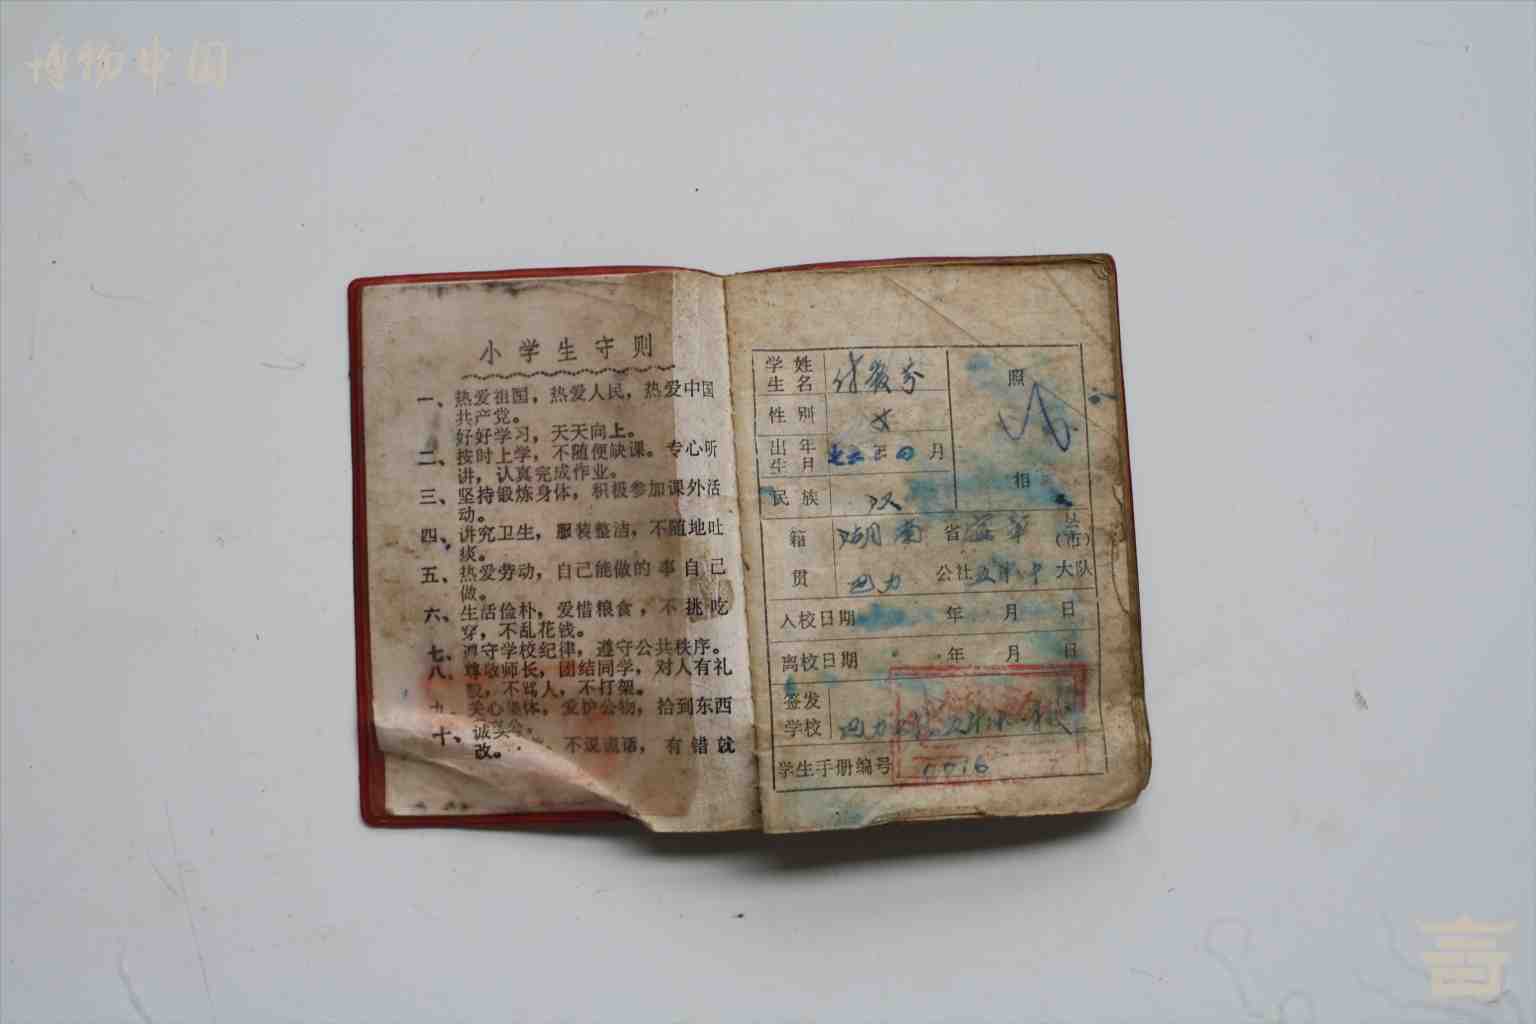 博物中国
小学生守则
一、热爱祖国，热爱人民，热爱中国
共产党。
好好学习，天天向上。
二、按时上学，不随便缺课。专心听
讲，认真完成作业。
三、坚持锻炼身体，积极参加课外活
动。
四、讲究卫生，服装整洁，不随地吐
痰。
五、热爱劳动，自己能做的事自己
做。
六、生活俭朴，爱惜粮食，不挑吃
穿，不乱花钱。
七、遵守学校纪律，遵守公共秩序。
八、尊敬师长，团结同学，对人有礼
貌，不骂人，不打架。
九、关心集体，爱护公物，拾到东西
十、诚实
不说谎话，有错就
改。
学生姓名
性别 女
出生年月 年四月
民族 汉
照
相
籍贯 湖南省 县(市)
巴力公社 大队
入校日期 年 月 日
离校日期 年 月 日
签发学校 巴力
学生手册编号 0016